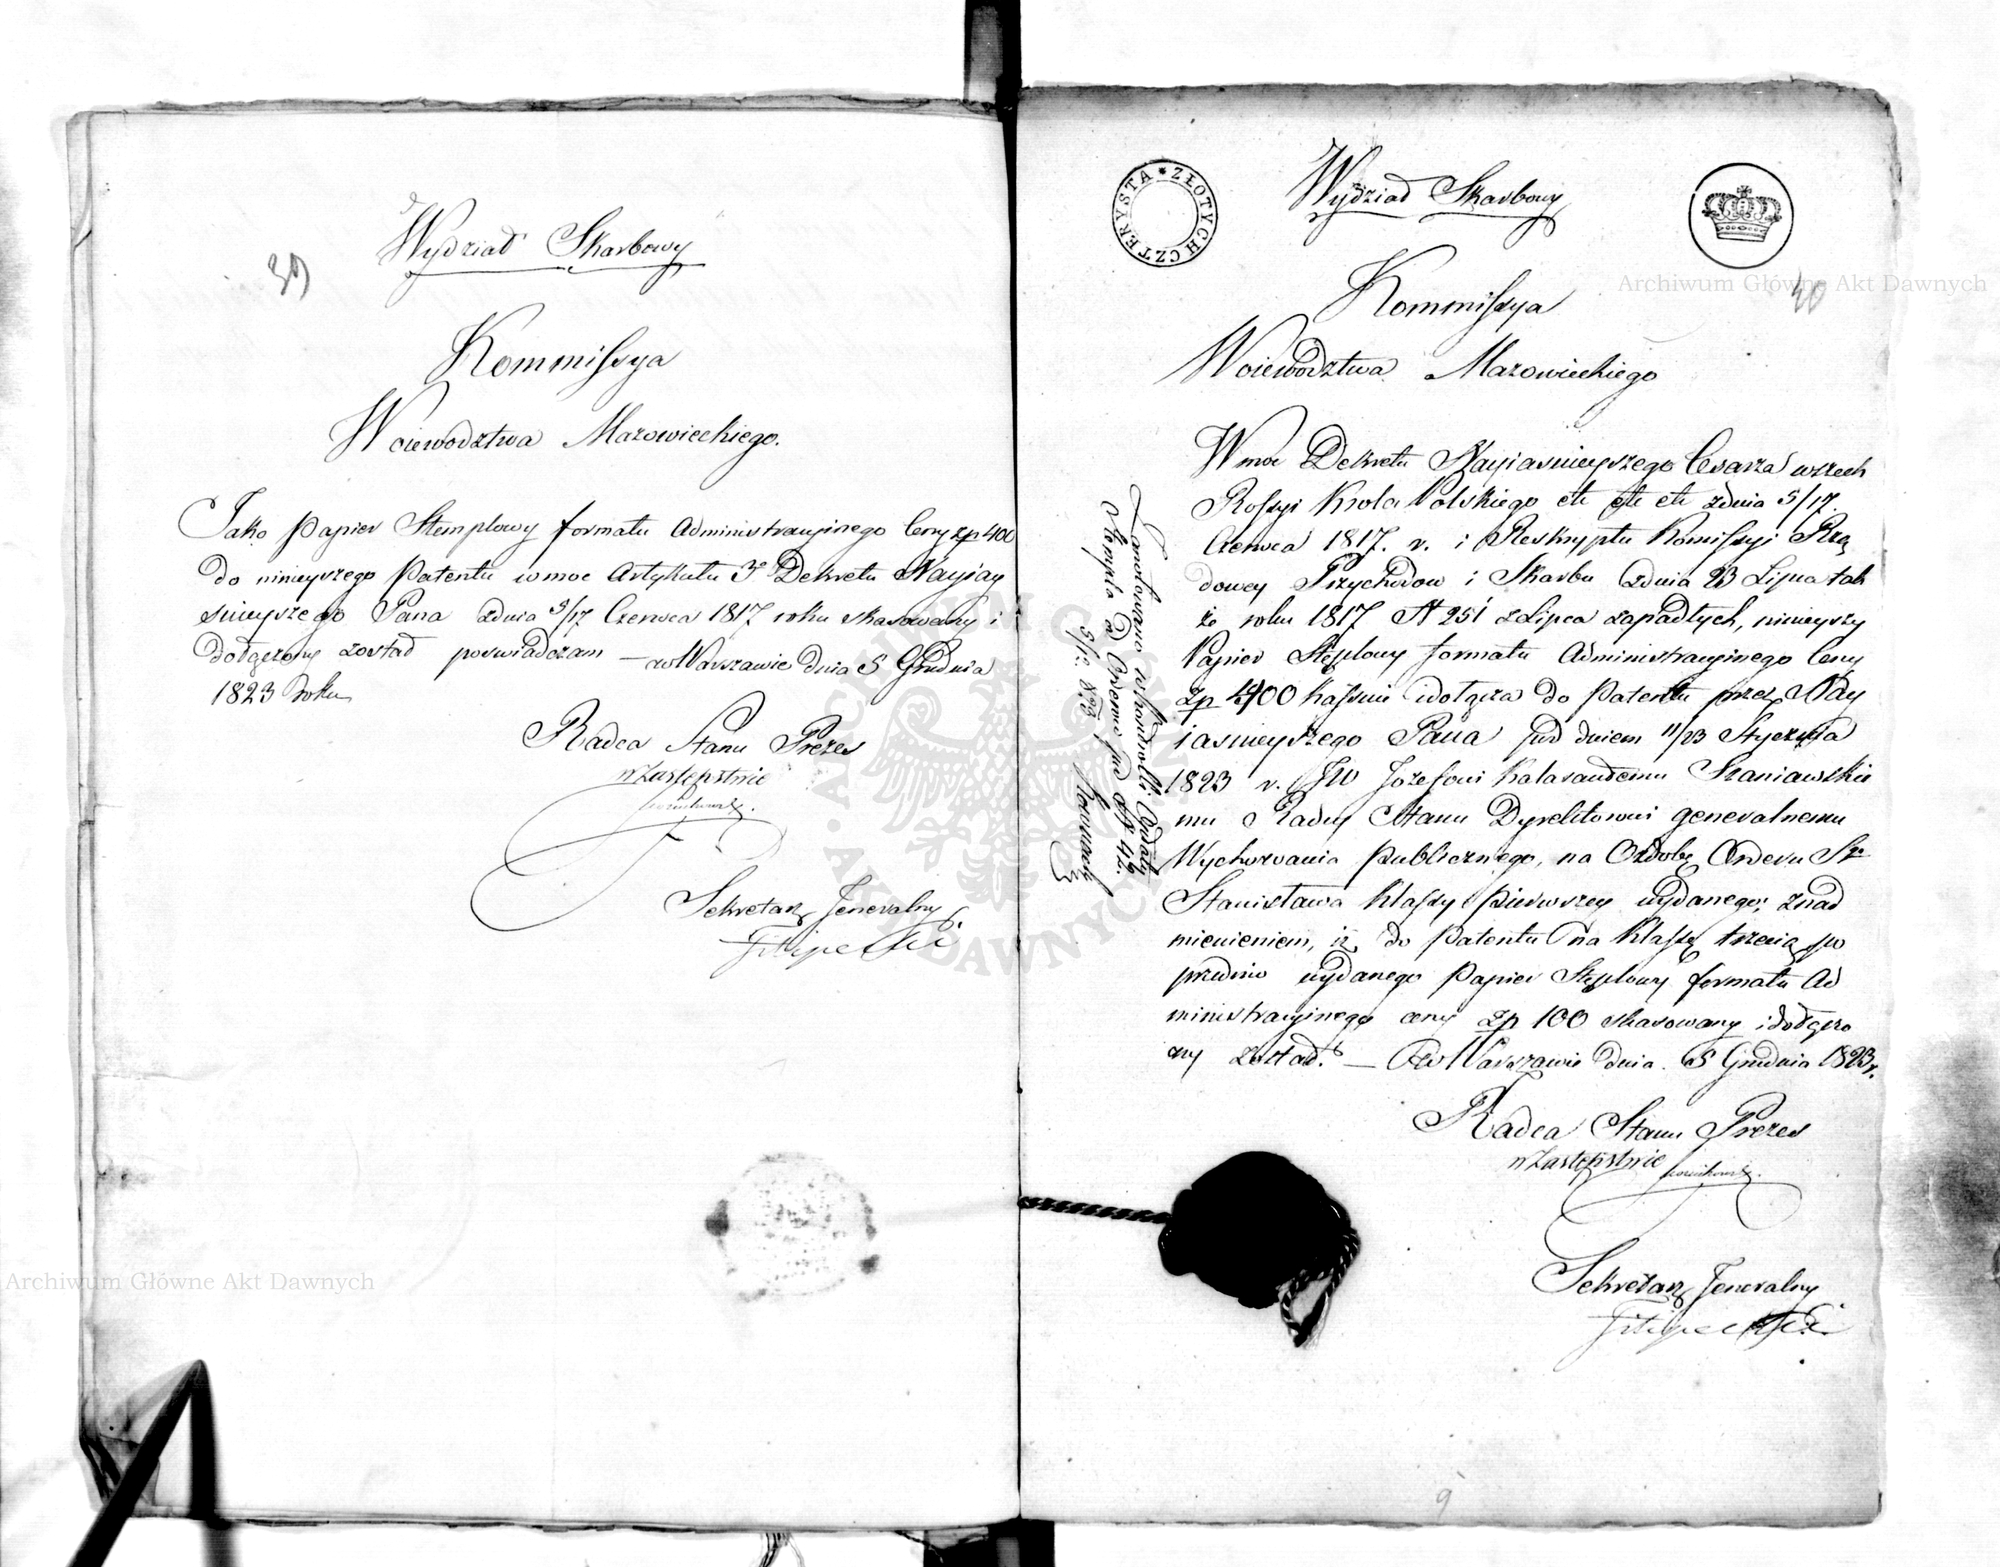 39
Wydział Skarbowy
Kommissya
Woiewodztwa Mazowieckiego.
Jako Papier Stemplowy formatu Administracyinego Ceny zp 400
do ninieyszego Patentu w moc Artykułu 3º Dekretu Nayiay
śnieyszego Pana z dnia 5/17 Czerwca 1817 roku skasowany i
dołączony został poswiadczam — w Warszawie dnia 5 Grudnia
1823 roku
Radca Stanu Prezes
w Zastępstwie
Sekretarz Jeneralny
Filipecki
CZTERYSTA * ZŁOTYCH
Wydział Skarbowy
40
Kommissya
Woiewodztwa Mazowieckiego
W moc Dekretu Nayiasnieyszego Cesarza wszech
Rossyi Krola Polskiego etc etc etc z dnia 5/17.
Czerwca 1817. r. i Reskryptu Komissyi Rzą
dowey Przychodow i Skarbu z dnia 23 Lipca tak
że roku 1817 N 251 z Lipca zapadłych, ninieyszy
Papier Stęplowy formatu Administracyinego Ceny
zp 400 kassuie i dołącza do Patentu przez Nay
iasnieyszego Pana pod dniem 11/23 Stycznia
1823 r. JW Jozefowi Kalasantemu Szaniawskie
mu Radcy Stanu Dyrektorowi generalnemu
Wychowania publicznego, na Ozdobę Orderu Sgo
Stanisława klassy pierwszey wydanego; z nad
mienieniem, iż do Patentu na klassę trzecią po
przednio wydanego Papier Stęplowy formatu Ad
ministracyinego ceny zp 100 skasowany i dołączo
ny został. — w Warszawie dnia 5 Grudnia 1823 r.
Radca Stanu Prezes
w Zastępstwie
Sekretarz Jeneralny
Filipecki
Stempla od Orderow pod N 42.
5/12 823
9
Archiwum Główne Akt Dawnych
Archiwum Główne Akt Dawnych
ARCHIWUM GŁÓWNE AKT DAWNYCH